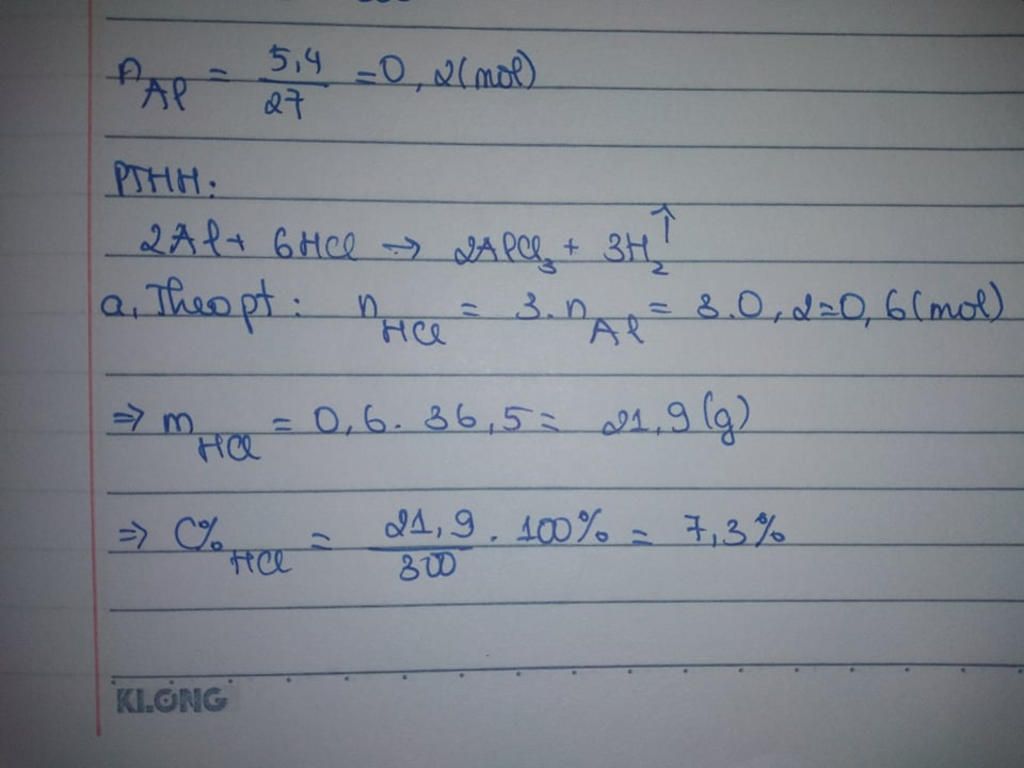 n_Al = 5,4/27 = 0,2 (mol)
PTHH:
2Al + 6HCl → 2AlCl₃ + 3H₂↑
a, Theo pt: n_HCl = 3.n_Al = 3.0,2=0,6 (mol)
⇒ m_HCl = 0,6. 36,5 = 21,9 (g)
⇒ C%_HCl = 21,9/300 . 100% = 7,3%
KLONG